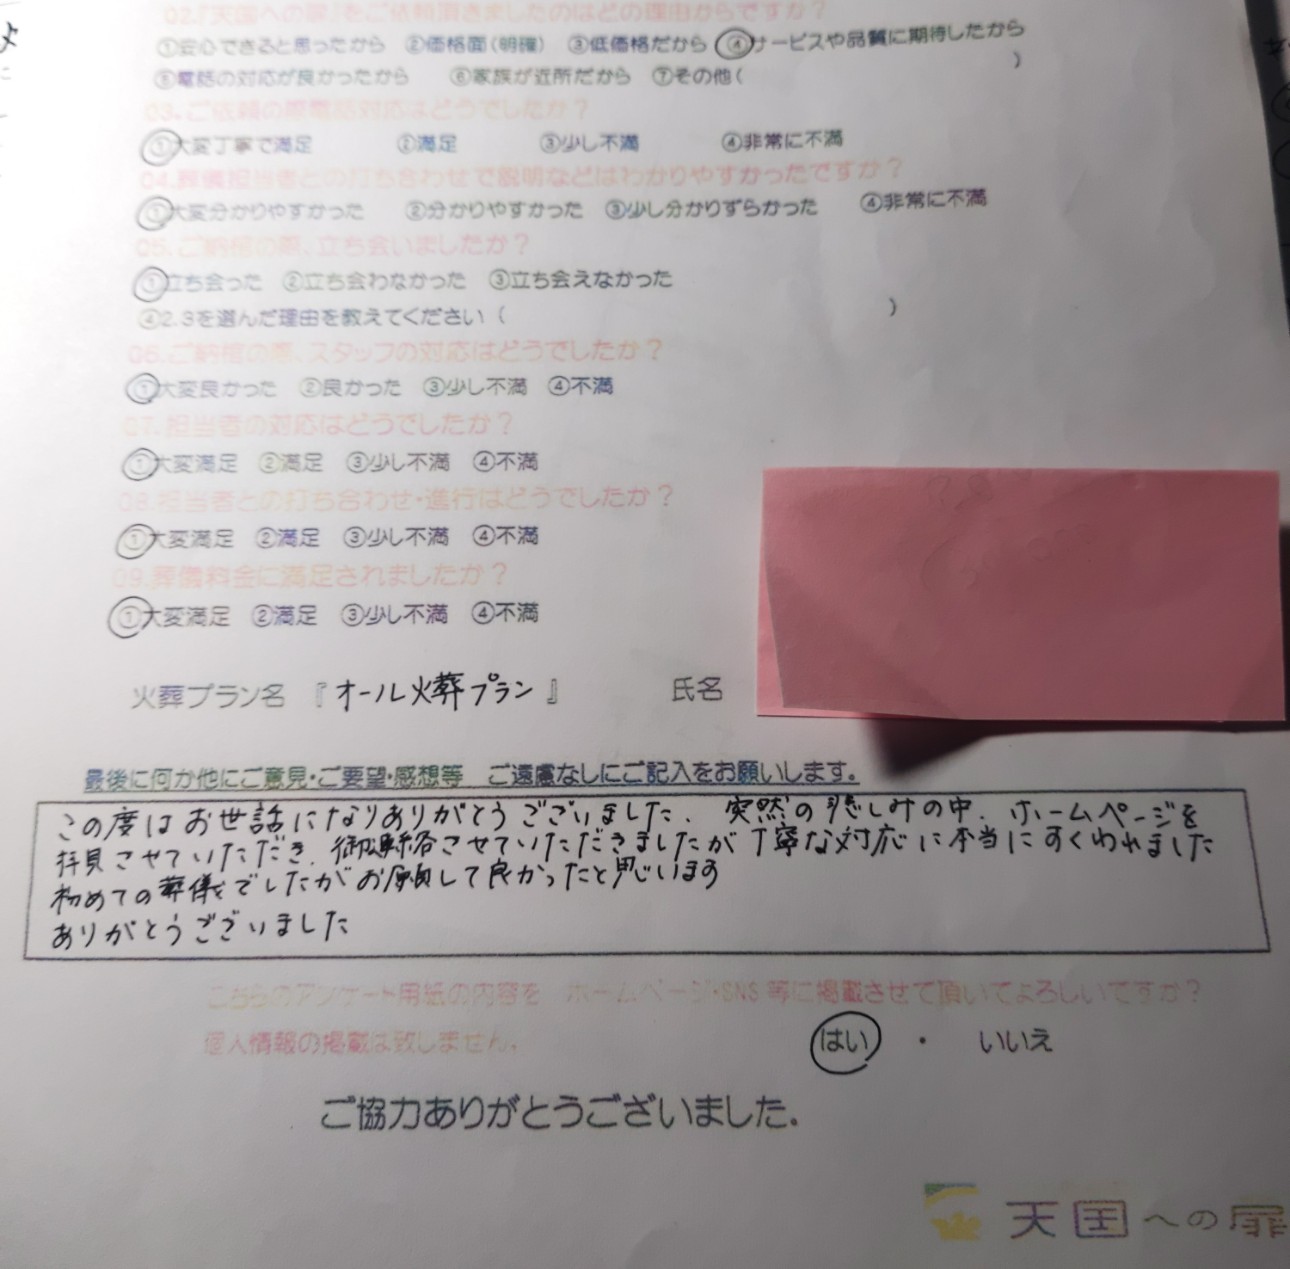 02.『天国への扉』をご依頼頂きましたのはどの理由からですか？
①安心できると思ったから ②価格面(明確) ③低価格だから ④サービスや品質に期待したから
⑤電話の対応が良かったから ⑥家族が近所だから ⑦その他( )
03.ご依頼の際電話対応はどうでしたか？
①大変丁寧で満足 ②満足 ③少し不満 ④非常に不満
04.葬儀担当者との打ち合わせで説明などはわかりやすかったですか？
①大変分かりやすかった ②分かりやすかった ③少し分かりずらかった ④非常に不満
05.ご納棺の際、立ち会いましたか？
①立ち会った ②立ち会わなかった ③立ち会えなかった
④2.3を選んだ理由を教えてください( )
06.ご納棺の際、スタッフの対応はどうでしたか？
①大変良かった ②良かった ③少し不満 ④不満
07.担当者の対応はどうでしたか？
①大変満足 ②満足 ③少し不満 ④不満
08.担当者との打ち合わせ・進行はどうでしたか？
①大変満足 ②満足 ③少し不満 ④不満
09.葬儀料金に満足されましたか？
①大変満足 ②満足 ③少し不満 ④不満
火葬プラン名 『オール火葬プラン』 氏名
最後に何か他にご意見・ご要望・感想等 ご遠慮なしにご記入をお願いします。
この度はお世話になりありがとうございました。突然の悲しみの中、ホームページを
拝見させていただき、御連絡させていただきましたが丁寧な対応に本当にすくわれました
初めての葬儀でしたがお願して良かったと思います
ありがとうございました
こちらのアンケート用紙の内容を ホームページ・SNS等に掲載させて頂いてよろしいですか？
個人情報の掲載は致しません。 はい ・ いいえ
ご協力ありがとうございました。
天国への扉